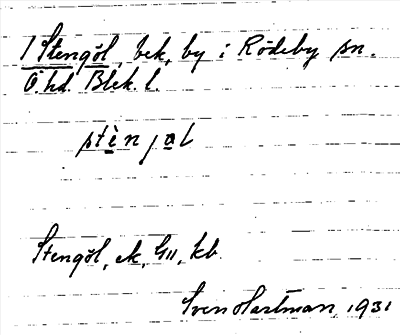 1 Stengöl, bek, by i Rödeby sn.
Ö. hd. Blek. l.
stènjal
Stengöl, ek, G11, kb.
Sven Hartman 1931